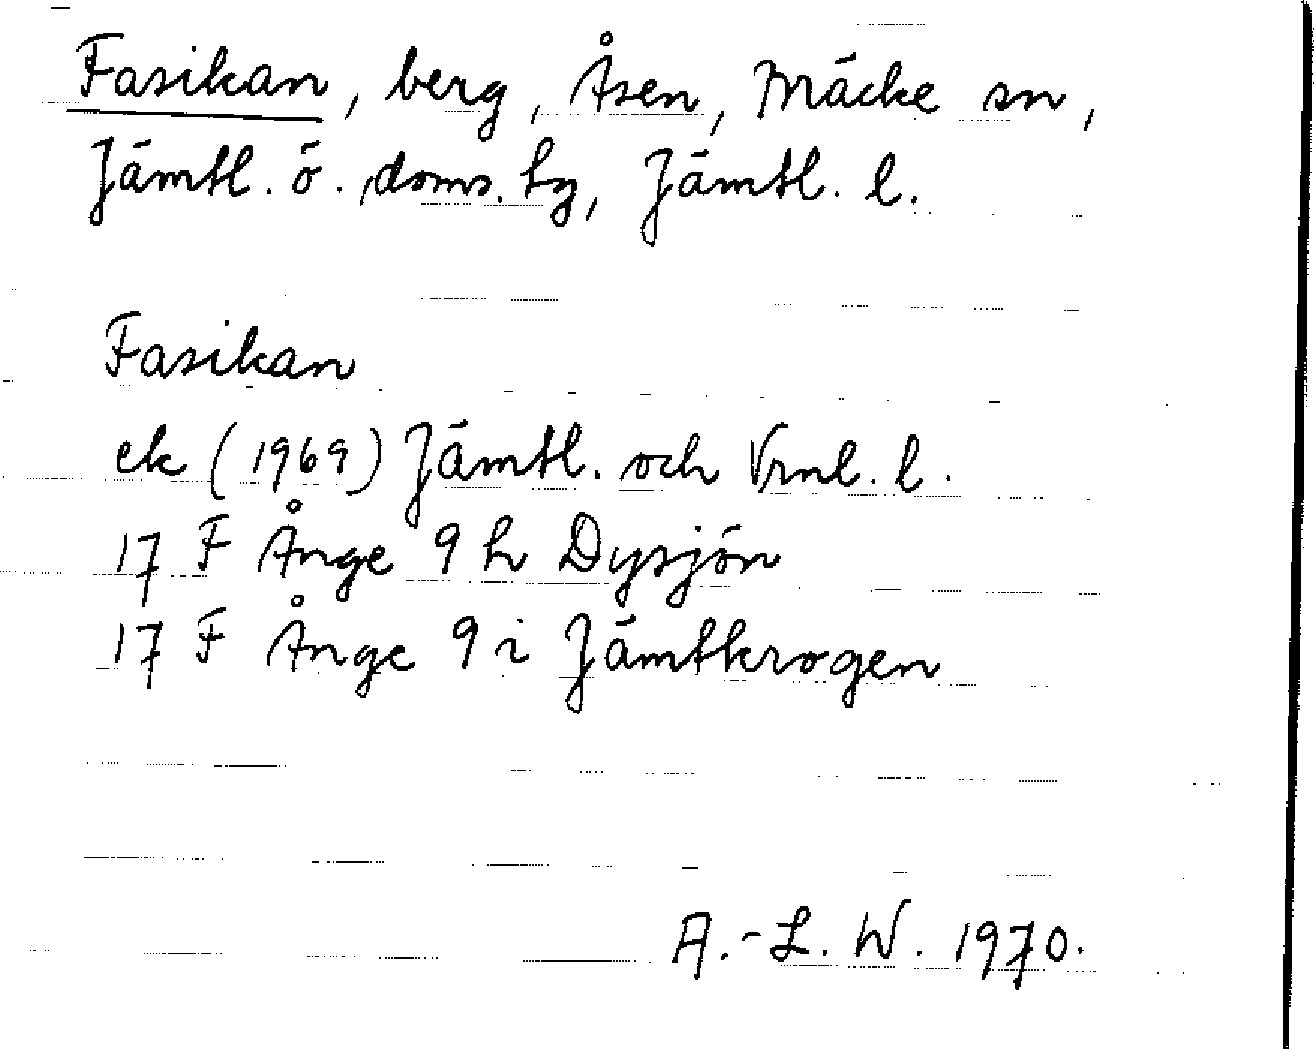 Fasikan, berg, Åsen, Bräcke sn,
Jämtl. ö. doms. hg, Jämtl. l.
Fasikan
ek (1969) Jämtl. och Vrnl. l.
17 F Ånge 9 h Dysjön
17 F Ånge 9 i Jämtkrogen
A.-L. W. 1970.